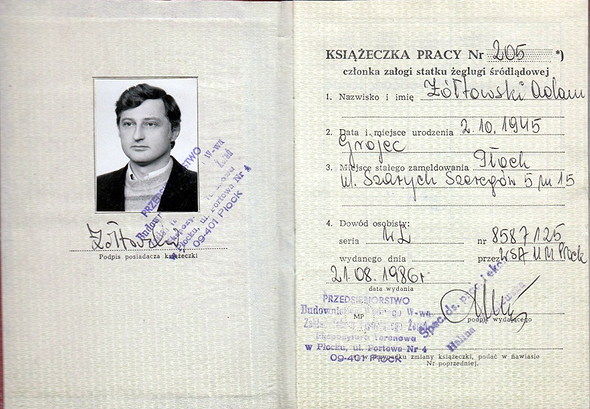 Żółtowski
Podpis posiadacza książeczki
PRZEDSIĘBIORSTWO
Płocku, ul. Portowa Nr 4
09-401 Płock
KSIĄŻECZKA PRACY Nr 205 *)
członka załogi statku żeglugi śródlądowej
1. Nazwisko i imię Żółtowski Adam
2. Data i miejsce urodzenia 2.10.1945
Grójec
3. Miejsce stałego zameldowania Płock
ul. Szarych Szeregów 5 m 15
4. Dowód osobisty:
seria nr 8587125
wydanego dnia przez WSA UM Płock
21.08.1986r
data wydania
MP
podpis wydającego
PRZEDSIĘBIORSTWO
Budownictwa W-wa
w Płocku, ul. Portowa Nr 4
09-401 Płock
zmiany książeczki, podać w nawiasie
Nr poprzedniej.
Halina